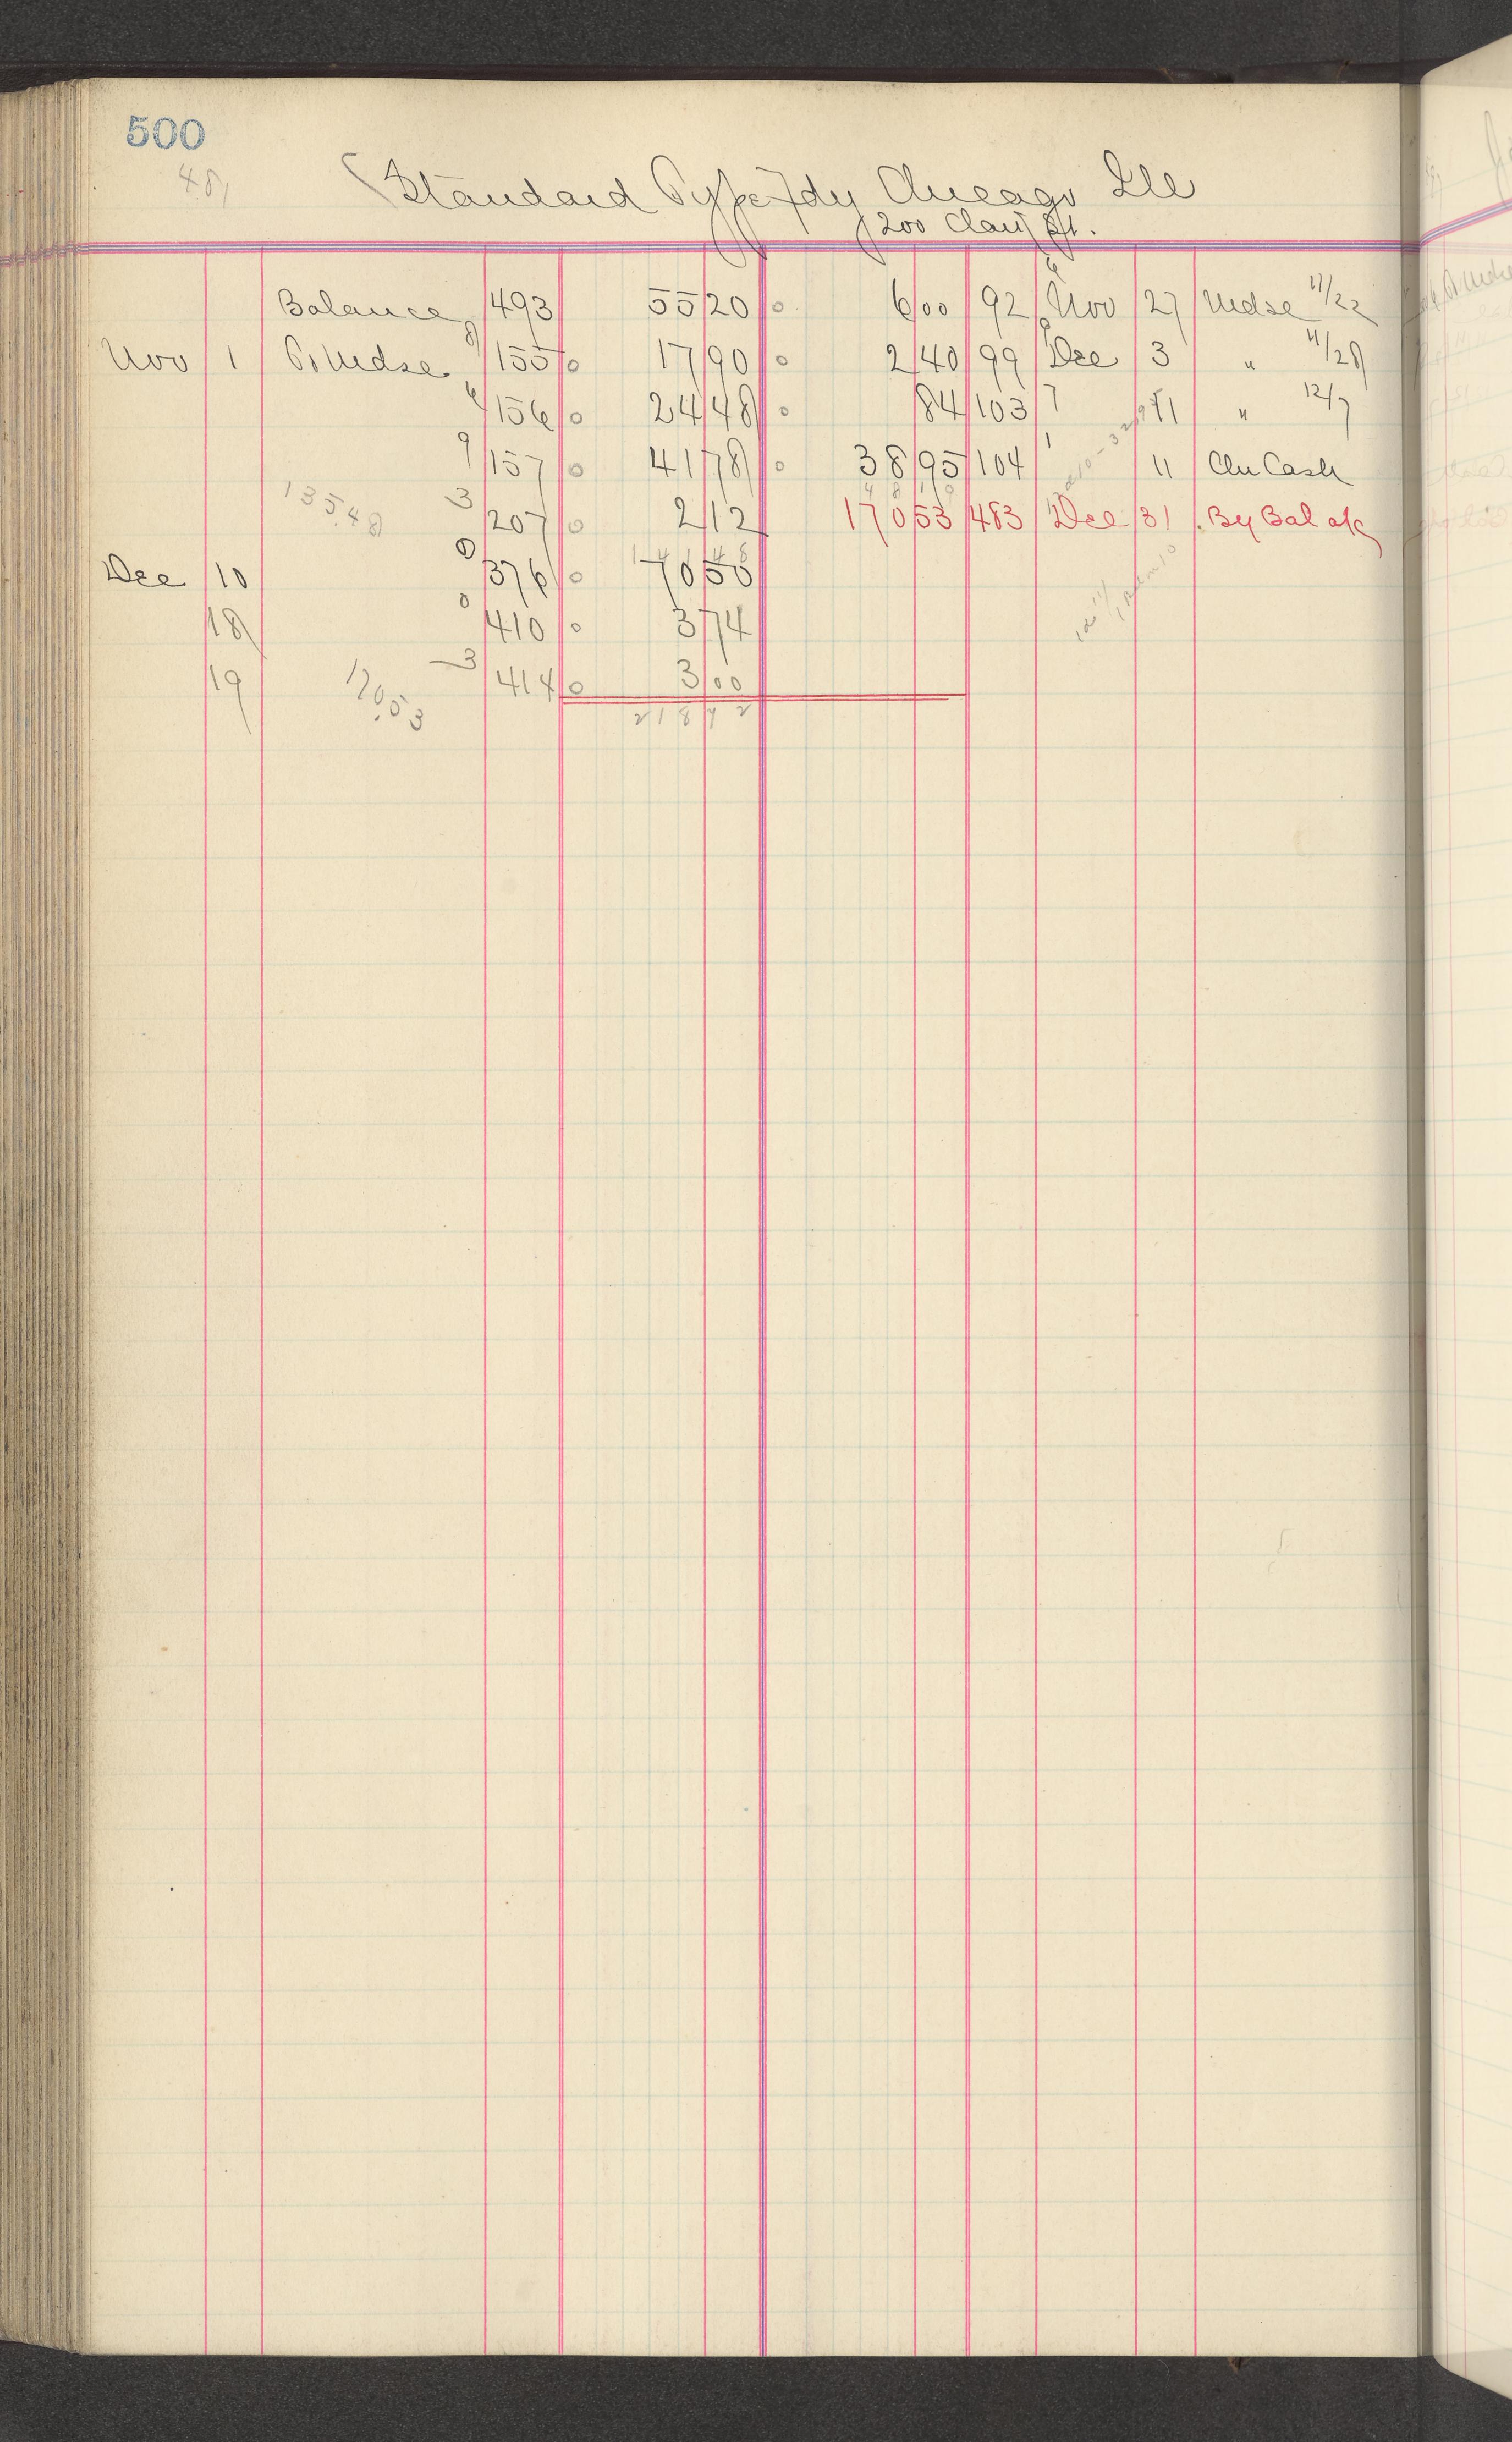 500
481
Standard Type Fdy Chicago Ill
200 Clark St.
Balance 493 55 20 0 6 00 92 6 Nov 27 Mdse 11/22
Nov 1 To Mdse 8 155 0 17 90 0 2 40 99 8 Dec 3 " 11/28
4 156 0 24 48 0 84 103 7 11 " 12/7
9 157 0 41 78 0 38 95 104 1 11 Chu Cash
4 8 1 9
135.48 3 207 0 2 12 170 53 483 Dec 31 By Bal a/c
1 4 1 4 8
Dec 10 0 376 0 70 50
18 0 410 0 3 74
19 3 414 0 3 00
170.53
218 72